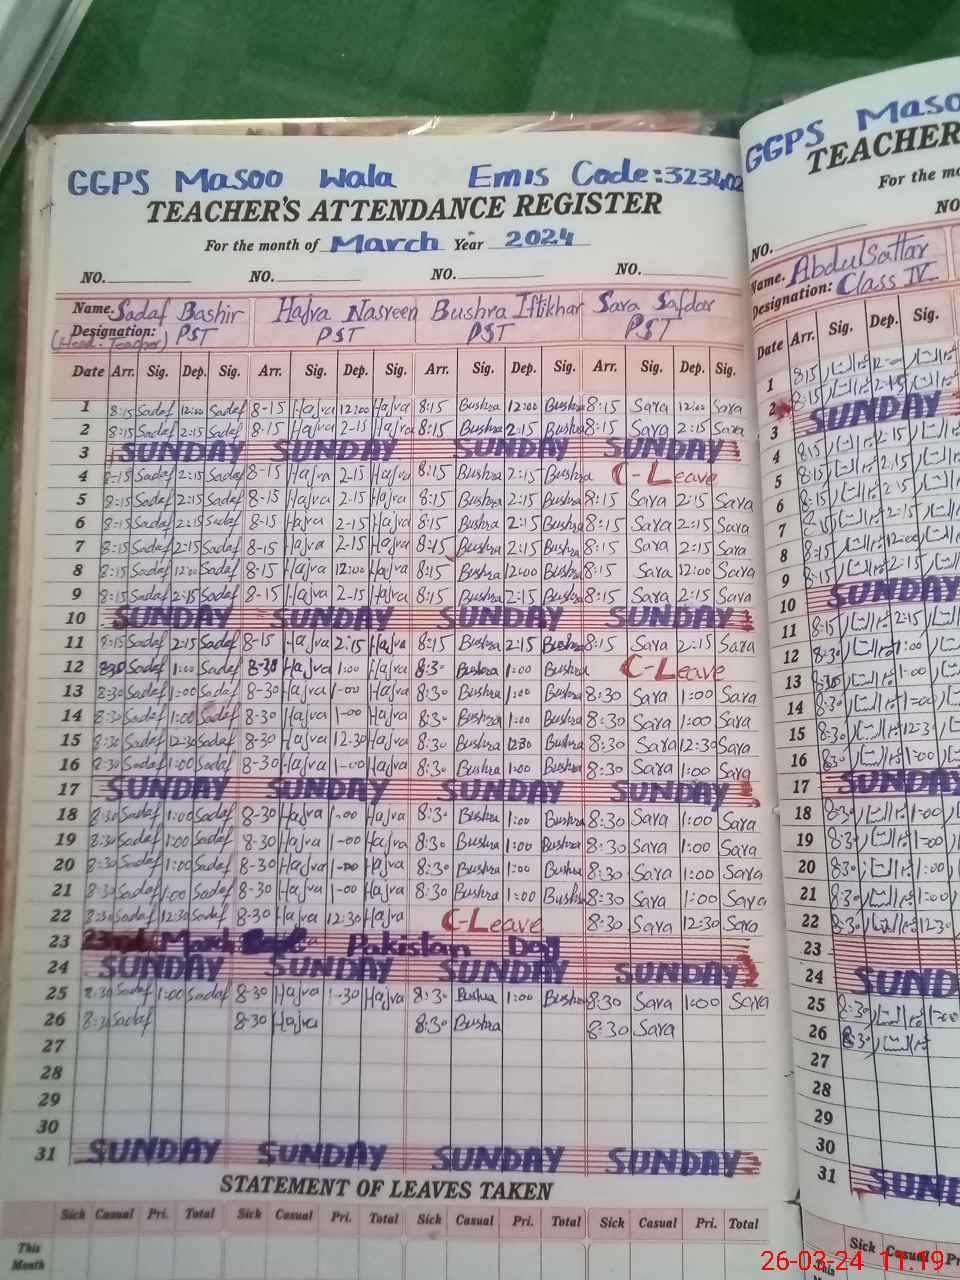 GGPS Masoo Wala Emis Code:323402
TEACHER'S ATTENDANCE REGISTER
For the month of March Year 2024
NO. NO. NO. NO.
Name. Sadaf Bashir Hajra Nasreen Bushra Iftikhar Sara Safdar
Designation: PST PST PST PST
(Head-Teacher)
Date Arr. Sig. Dep. Sig. Arr. Sig. Dep. Sig. Arr. Sig. Dep. Sig. Arr. Sig. Dep. Sig.
1 8:15 Sadaf 12:00 Sadaf 8-15 Hajra 12:00 Hajra 8:15 Bushra 12:00 Bushra 8:15 Sara 12:00 Sara
2 8:15 Sadaf 2:15 Sadaf 8-15 Hajra 2-15 Hajra 8:15 Bushra 2:15 Bushra 8:15 Sara 2:15 Sara
3 SUNDAY SUNDAY SUNDAY SUNDAY
4 8-15 Sadaf 2:15 Sadaf 8-15 Hajra 2-15 Hajra 8:15 Bushra 2:15 Bushra C-Leave
5 8:15 Sadaf 2:15 Sadaf 8-15 Hajra 2-15 Hajra 8:15 Bushra 2:15 Bushra 8:15 Sara 2:15 Sara
6 8:15 Sadaf 2:15 Sadaf 8-15 Hajra 2-15 Hajra 8:15 Bushra 2:15 Bushra 8:15 Sara 2:15 Sara
7 8:15 Sadaf 2:15 Sadaf 8-15 Hajra 2-15 Hajra 8:15 Bushra 2:15 Bushra 8:15 Sara 2:15 Sara
8 8:15 Sadaf 12:00 Sadaf 8-15 Hajra 12:00 Hajra 8:15 Bushra 12:00 Bushra 8:15 Sara 12:00 Sara
9 8:15 Sadaf 2:15 Sadaf 8-15 Hajra 2-15 Hajra 8:15 Bushra 2:15 Bushra 8:15 Sara 2:15 Sara
10 SUNDAY SUNDAY SUNDAY SUNDAY
11 8:15 Sadaf 2:15 Sadaf 8-15 Hajra 2:15 Hajra 8:15 Bushra 2:15 Bushra 8:15 Sara 2:15 Sara
12 8:30 Sadaf 1:00 Sadaf 8-30 Hajra 1:00 Hajra 8:30 Bushra 1:00 Bushra C-Leave
13 8:30 Sadaf 1:00 Sadaf 8-30 Hajra 1-00 Hajra 8:30 Bushra 1:00 Bushra 8:30 Sara 1:00 Sara
14 8:30 Sadaf 1:00 Sadaf 8-30 Hajra 1-00 Hajra 8:30 Bushra 1:00 Bushra 8:30 Sara 1:00 Sara
15 8:30 Sadaf 12:30 Sadaf 8-30 Hajra 12.30 Hajra 8:30 Bushra 12:30 Bushra 8:30 Sara 12:30 Sara
16 8:30 Sadaf 1:00 Sadaf 8-30 Hajra 1-00 Hajra 8:30 Bushra 1:00 Bushra 8:30 Sara 1:00 Sara
17 SUNDAY SUNDAY SUNDAY SUNDAY
18 8:30 Sadaf 1:00 Sadaf 8-30 Hajra 1-00 Hajra 8:30 Bushra 1:00 Bushra 8:30 Sara 1:00 Sara
19 8:30 Sadaf 1:00 Sadaf 8-30 Hajra 1-00 Hajra 8:30 Bushra 1:00 Bushra 8:30 Sara 1:00 Sara
20 8:30 Sadaf 1:00 Sadaf 8-30 Hajra 1-00 Hajra 8:30 Bushra 1:00 Bushra 8:30 Sara 1:00 Sara
21 8:30 Sadaf 1:00 Sadaf 8-30 Hajra 1-00 Hajra 8:30 Bushra 1:00 Bushra 8:30 Sara 1:00 Sara
22 8:30 Sadaf 12:30 Sadaf 8-30 Hajra 12:30 Hajra C-Leave 8:30 Sara 12:30 Sara
23 23rd March Pakistan Day
24 SUNDAY SUNDAY SUNDAY SUNDAY
25 8:30 Sadaf 1:00 Sadaf 8-30 Hajra 1-30 Hajra 8:30 Bushra 1:00 Bushra 8:30 Sara 1:00 Sara
26 8:30 Sadaf 8-30 Hajra 8:30 Bushra 8:30 Sara
27
28
29
30
31 SUNDAY SUNDAY SUNDAY SUNDAY
STATEMENT OF LEAVES TAKEN
Sick Casual Pri. Total Sick Casual Pri. Total Sick Casual Pri. Total Sick Casual Pri. Total
This Month
GGPS Maso
TEACHER
For the mo
NO. NO
Name. Abdul Sattar
Designation: Class IV
Date Arr. Sig. Dep. Sig.
1 8:15
2 8:15 2:15
3 SUNDAY
4 8:15 2:15
5 8:15 2:15
6 8:15 2:15
7 8:15
8 8:15 12:00
9 8:15 2:15
10 SUNDAY
11 8:15 2:15
12 8:30 1:00
13 8:30 1-00
14 8:30 1:00
15 8:30 12:30
16 8:30 1:00
17 SUNDAY
18 8:30 1:00
19 8:30 1:00
20 8:30 1:00
21 8:30 1:00
22 8:30 12:30
23
24 SUND
25 8:30
26 8:30
27
28
29
30
31 SUN
Sick Casual Pri
This
26-03-24 11:19